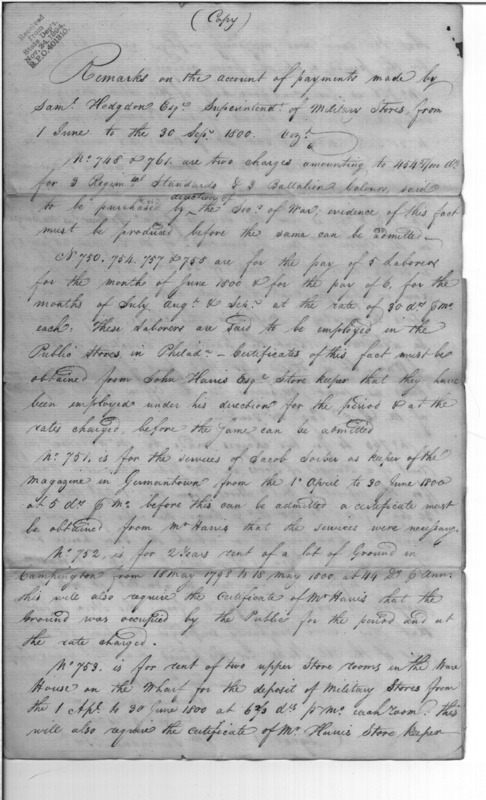 (Copy)
Received
from
State Dep't.
Nov. 24, 1894.
R.P.O. 401810.
Remarks on the account of payments made by
Saml. Hodgdon Esqr. Superintendt. of Military Stores, from
1 June to the 30 Sepr. 1800. Vizt.
No. 748 & 761. are two charges amounting to 454 Ds.
for 3 Regimental Standards & 3 Battalion Colours, said
to be purchased by direction of the Secy. of War; evidence of this fact
must be produced before the same can be admitted.
No. 750. 754. 757 & 758 are for the pay of 5 Laborers
for the months of June 1800 & for the pay of 6, for the
months of July Augt. & Sepr. at the rate of 30 ds. Mo.
each. These Laborers are said to be employed in the
Public Stores, in Philada. - Certificates of this fact must be
obtained from John Harris Esqr. Store keeper that they have
been employed under his direction for the period & at the
rates charged, before the same can be admitted
No. 751. is for the services of Jacob as keeper of the
Magazine in Germantown from the 1st April to 30 June 1800
at 5 ds. Mo. before this can be admitted a certificate must
be obtained from Mr. Harris that the services were necessary.
No. 752, is for 2 Years rent of a lot of Ground in
Campington from 18 May 1798 to 18 May 1800, at 44 Ds. Ann:
this will also require the Certificate of Mr. Harris that the
Ground was occupied by the Public for the period and at
the rate charged.
No. 753. is for rent of two upper Store rooms in the Ware
House on the Wharf for the deposit of Military Stores from
the 1 Apl. to 30 June 1800 at 6 2/3 ds. p Mo. each room. this
will also require the certificate of Mr. Harris Store keeper